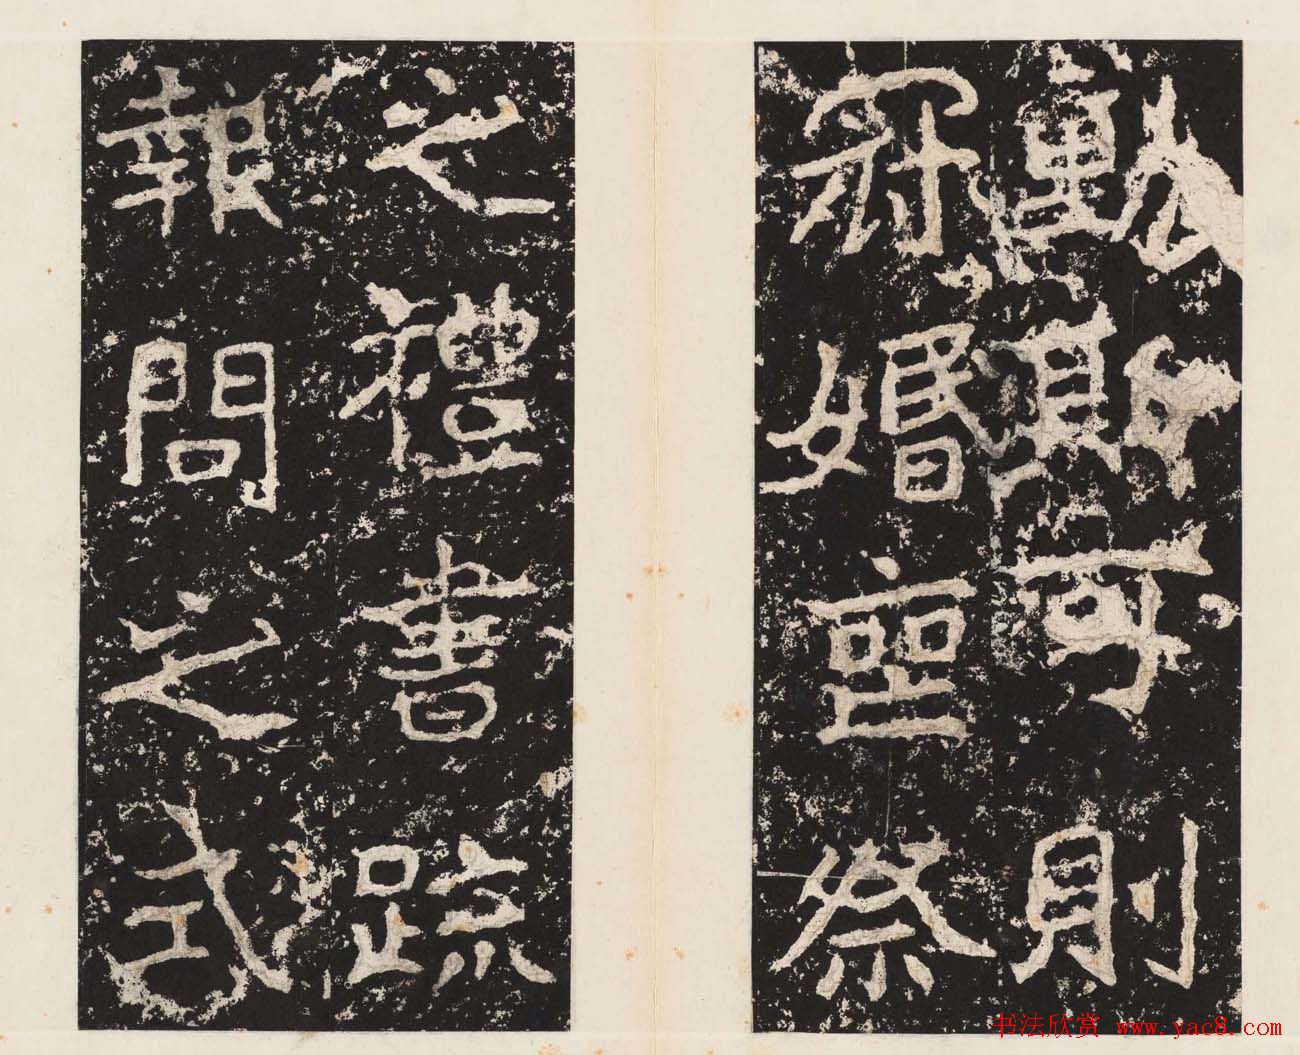 動斯可則
冠婚喪祭
之禮書疏
報問之式
书法欣赏 www.yac8.com